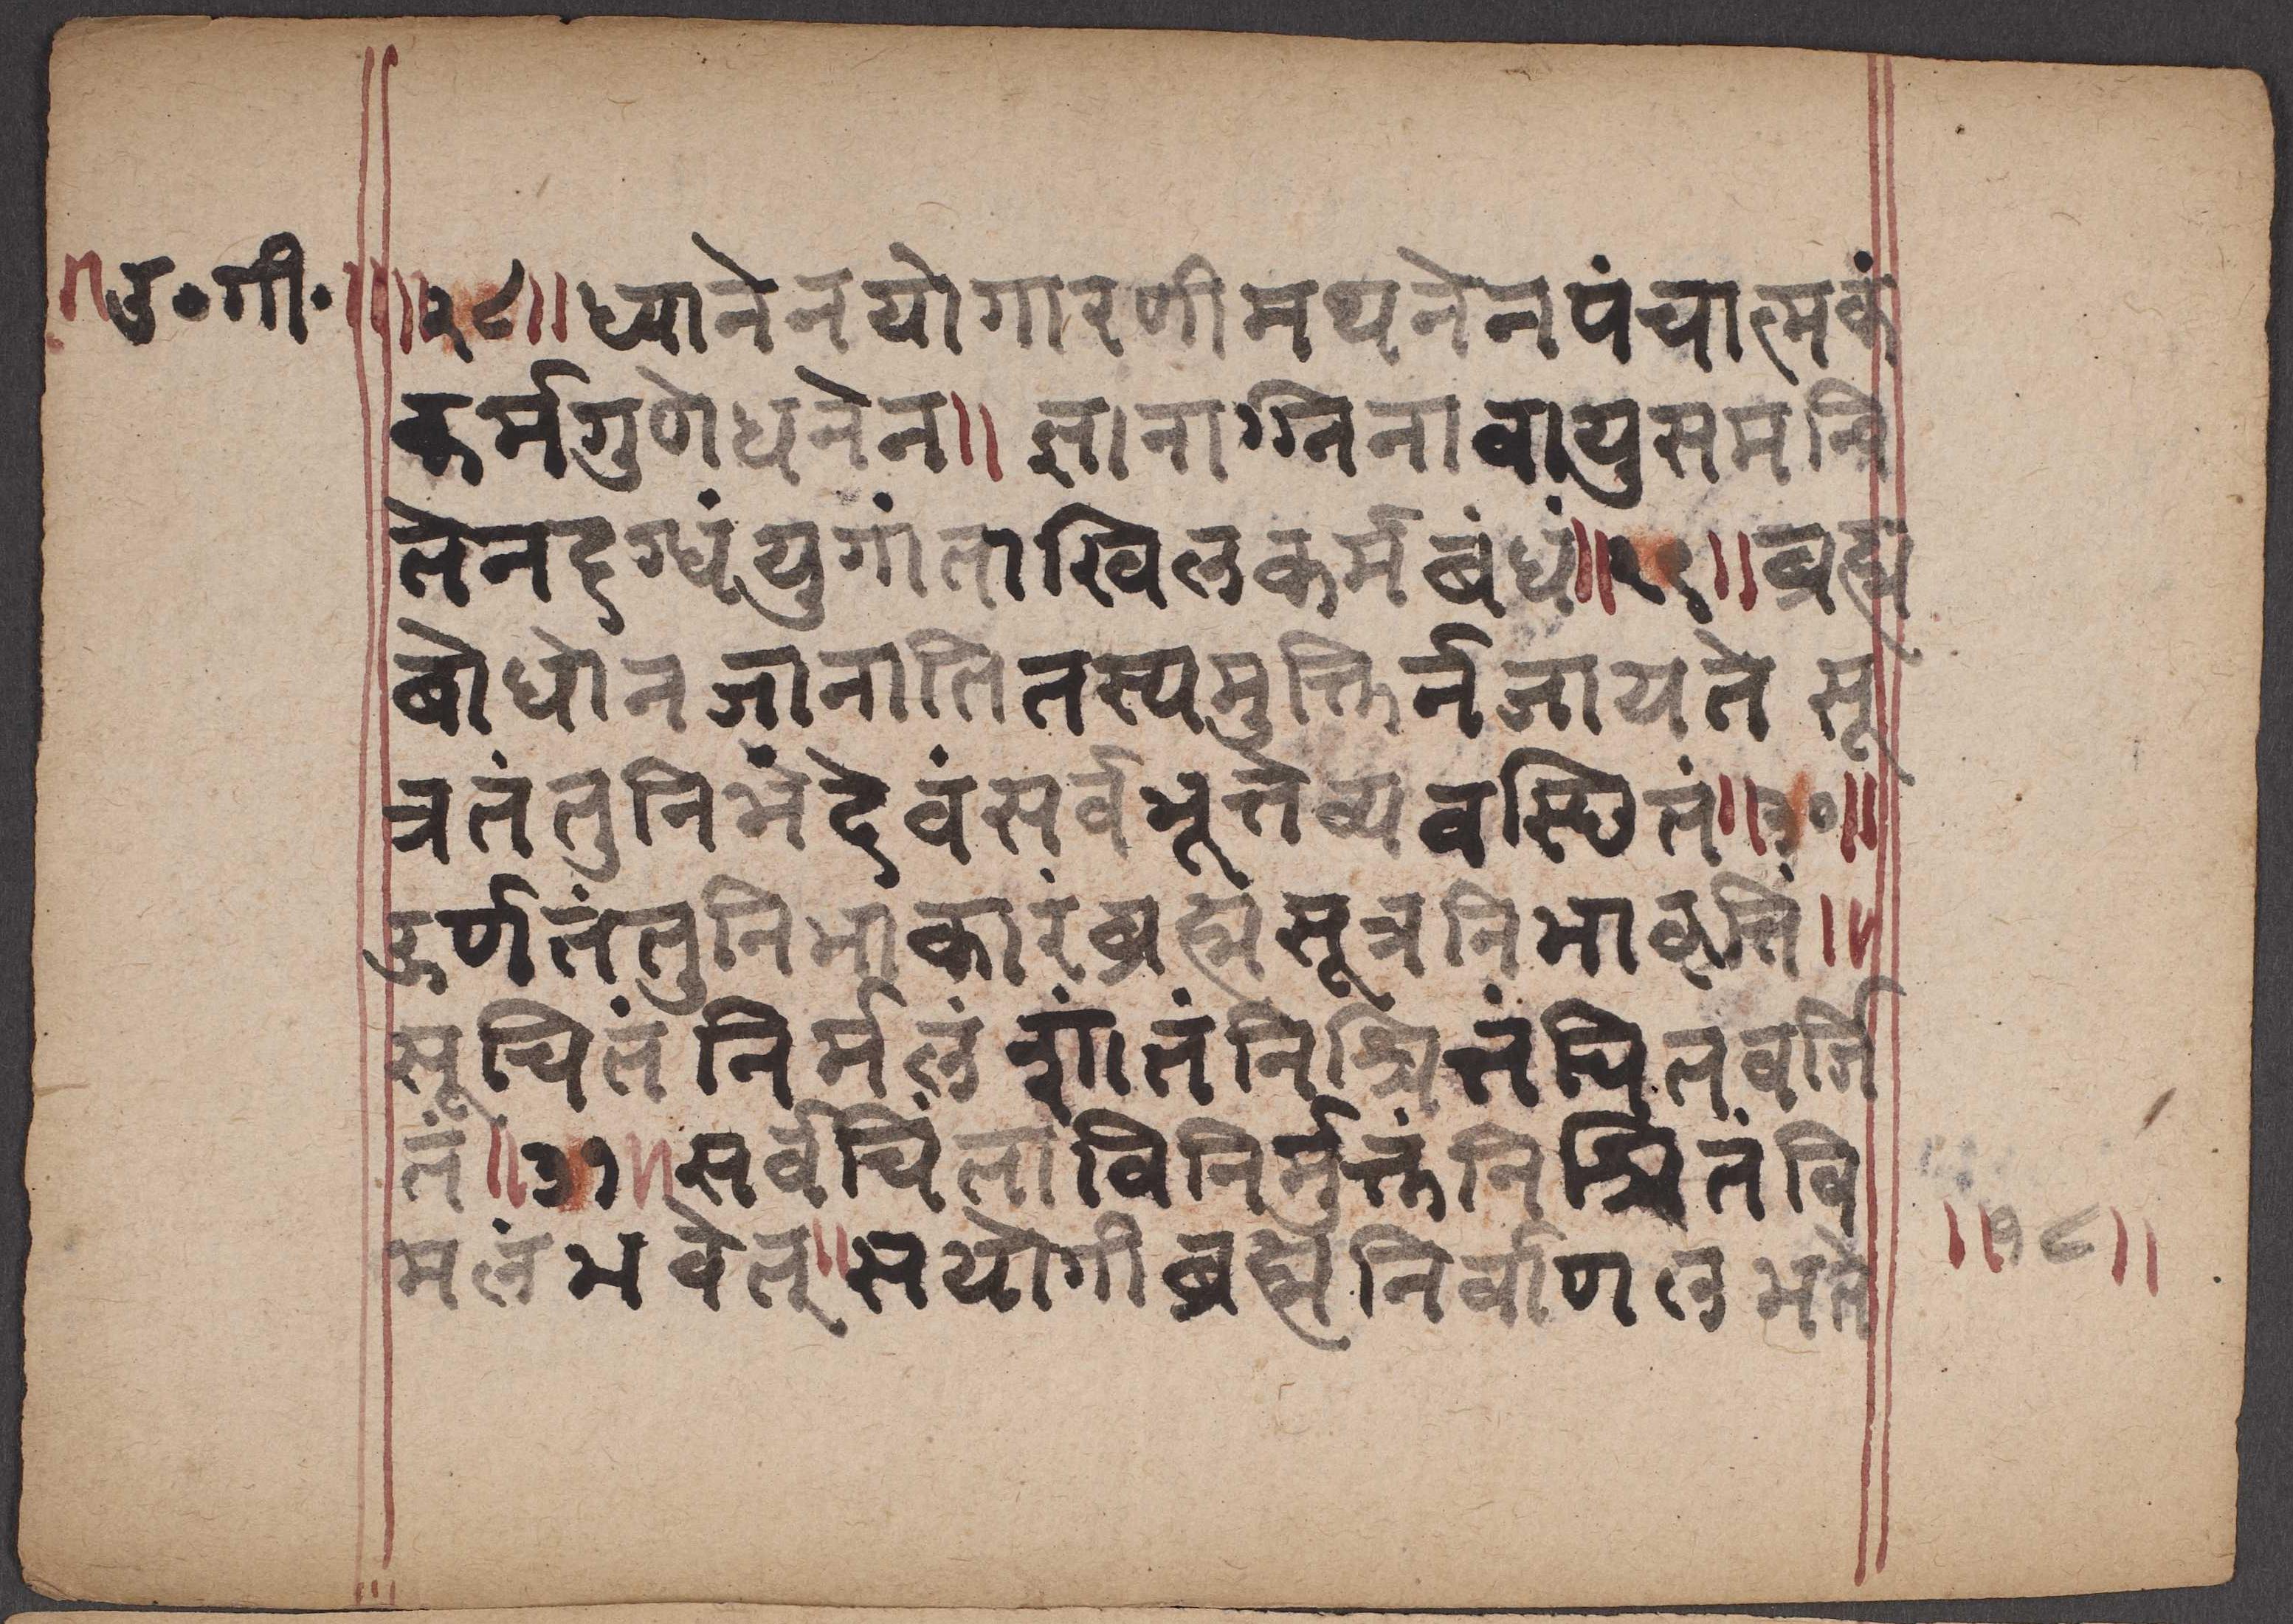 ॥उ॰गी॰॥
॥२८॥ध्यानेनयोगारणीमथनेनपंचात्मकं
कर्मगुणेधनेन॥ज्ञानाग्निनावायुसमन्वि
तेनदग्धंयुगांताखिलकर्मबंधं॥२९॥ब्रह्म
बोधोनजानातितस्यमुक्तिर्नजायते सू
त्रतंतुनिभंदेवंसर्वभूतेव्यवस्छितं॥३०॥
उर्णतंतुनिभांकारंब्रह्मंसूत्रनिभाकृतिं॥
सूचितंनिर्मलंशांतंनिश्चितंचितवर्जि
तं॥३१॥सर्वचिंतांविनिर्मुक्तंनिश्चितंवि
मलंभवेत्॥सयोगीब्रह्मनिर्वाणलभते
॥१८॥